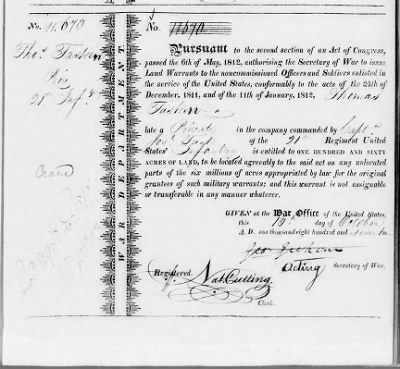 No. 11,670
Thos. Tasker
21st Infy.
WAR DEPARTMENT.
No. 11670.
Pursuant to the second section of an Act of Congress,
passed the 6th of May, 1812, authorising the Secretary of War to issue
Land Warrants to the noncommissioned Officers and Soldiers enlisted in
the service of the United States, conformably to the acts of the 24th of
December, 1811, and of the 11th of January, 1812, Thomas
late a Private in the company commanded by Capt.
of the 21st Regiment United
States' Infantry is entitled to ONE HUNDRED AND SIXTY
ACRES OF LAND, to be located agreeably to the said act on any unlocated
parts of the six millions of acres appropriated by law for the original
grantees of such military warrants; and this warrant is not assignable
or transferable in any manner whatever.
GIVEN at the War Office of the United States,
this day of October
A. D. one thousand eight hundred and
Geo Graham
Acting Secretary of War.
Registered. Nat. Cutting.
Clerk.